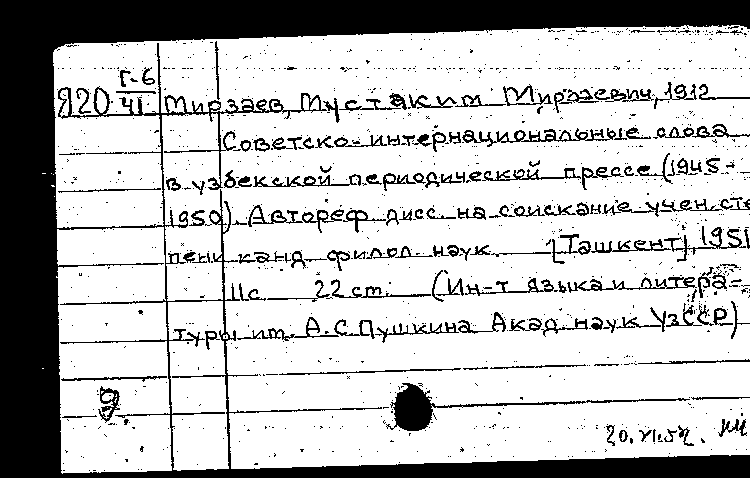 Г-6
Я20 41 Мирзаев, Мустаким Мирзаевич, 1912
Советско-интернациональные слова
в узбекской периодической прессе (1945-
1950). Автореф. дисс. на соискание учен. сте
пени канд. филол. наук. [Ташкент], 1951
11с. 22 cm. (Ин-т языка и литера-
туры им. А.С. Пушкина Акад. наук УзССР)
9